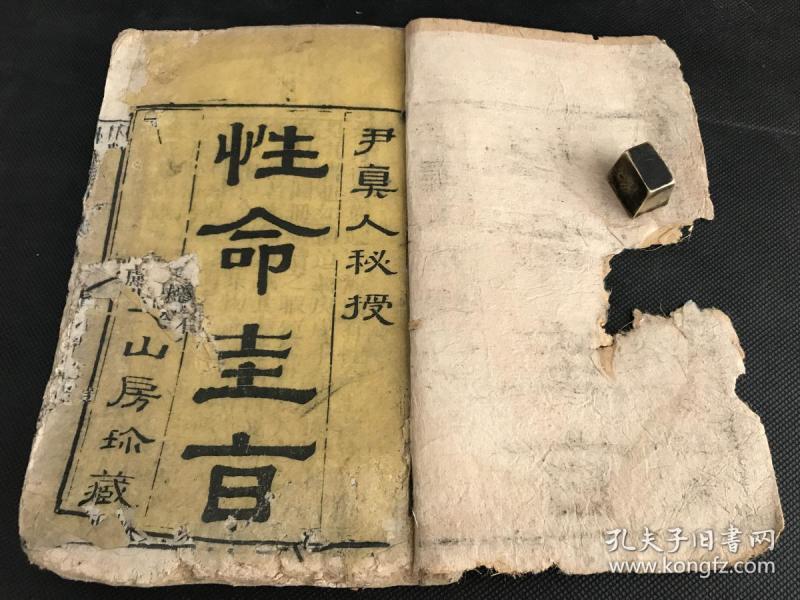 尹真人秘授
性命圭旨
山房珍藏
孔夫子旧书网
www.kongfz.com